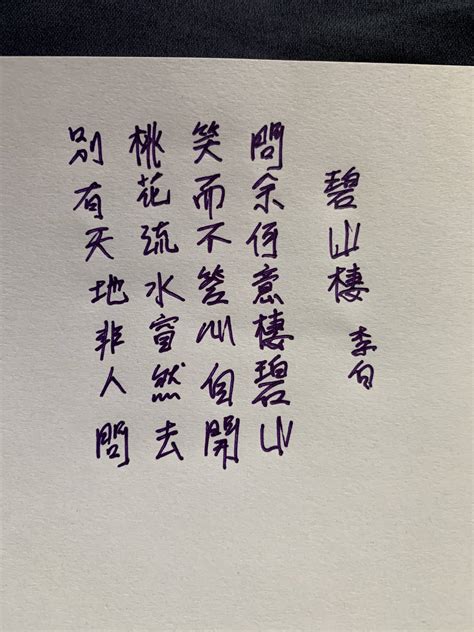 碧山棲 李白
問余何意棲碧山
笑而不答心自開
桃花流水窅然去
別有天地非人間